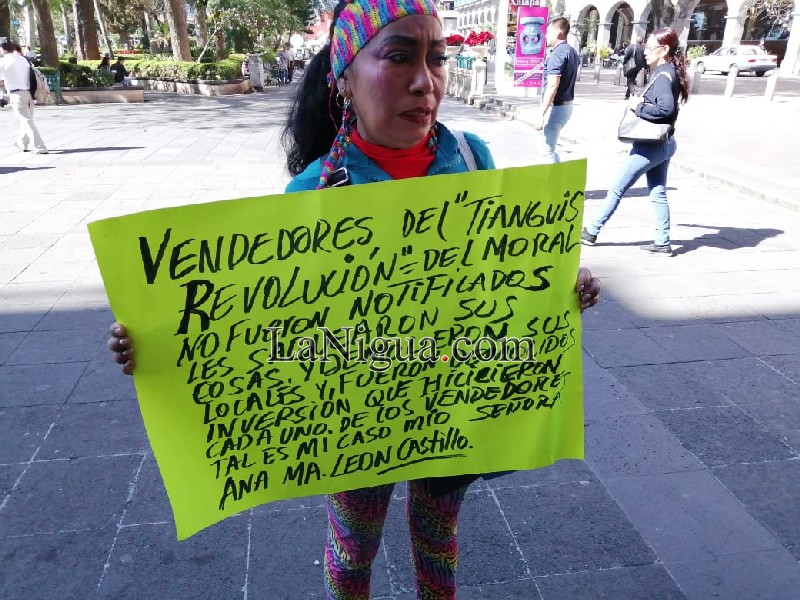 VENDEDORES, DEL "TIANGUIS
REVOLUCIÓN" = DEL MORAL
NO FUERON NOTIFICADOS
LES SUS
COSAS, Y SUS
LOCALES Y, FUERON
INVERSIÓN QUE HICIERON
CADA UNO. DE LOS VENDEDORES
TAL ES MI CASO MIO SEÑORA
ANA MA. LEON CASTILLO.
LaNigua.com